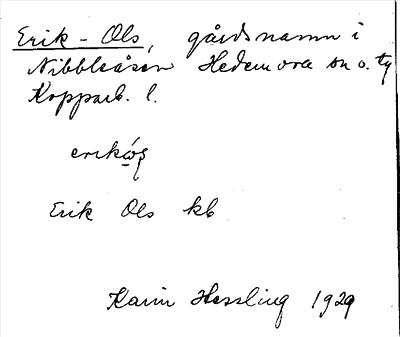 Erik-Ols, gårdsnamn i
Nibbleåsen Hedemora sn o. ty
Kopparb. l.
Erik Ols kb
Karin Hessling 1929